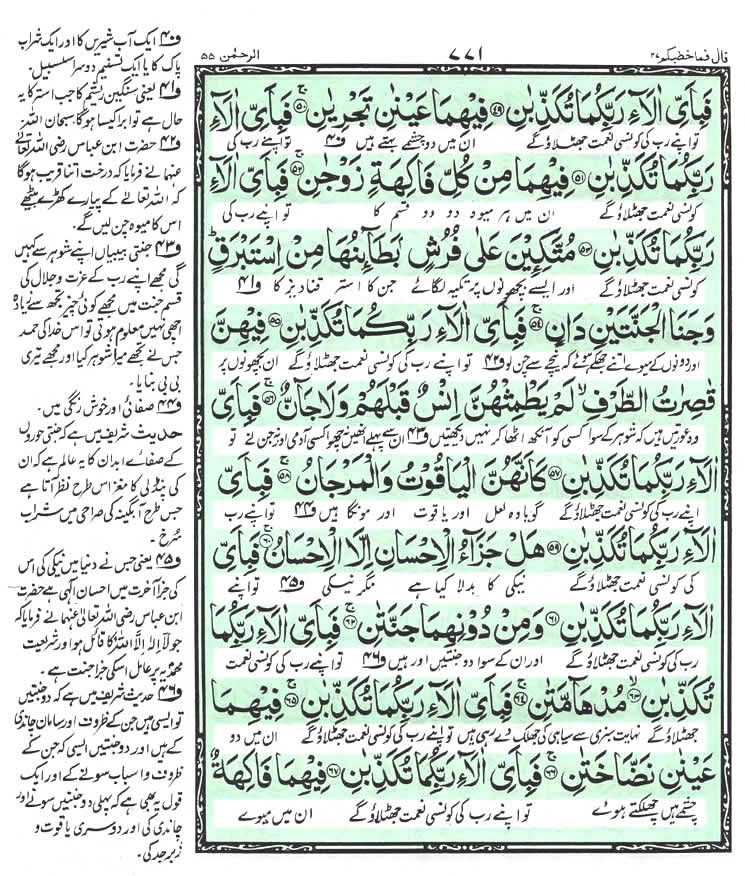 قال فما خطبکم ۲۷
۷۷۱
الرحمٰن ۵۵
فَبِأَيِّ اٰلَآءِ رَبِّكُمَا تُكَذِّبٰنِ ۴۹ فِيْهِمَا عَيْنٰنِ تَجْرِيٰنِ ۵۰ فَبِأَيِّ اٰلَآءِ
تو اپنے رب کی کونسی نعمت جھٹلاؤ گے ان میں دو چشمے بہتے ہیں ف۴۰ تو اپنے رب کی
رَبِّكُمَا تُكَذِّبٰنِ ۵۱ فِيْهِمَا مِنْ كُلِّ فَاكِهَةٍ زَوْجٰنِ ۵۲ فَبِأَيِّ اٰلَآءِ
کونسی نعمت جھٹلاؤ گے ان میں ہر میوہ دو دو قسم کا تو اپنے رب کی
رَبِّكُمَا تُكَذِّبٰنِ ۵۳ مُتَّكِـِٕيْنَ عَلٰى فُرُشٍۭ بَطَآىِٕنُهَا مِنْ اِسْتَبْرَقٍ
کونسی نعمت جھٹلاؤ گے اور ایسے بچھونوں پر تکیہ لگائے جن کا استر قنادیز کا ف۴۱
وَجَنَا الْجَنَّتَيْنِ دَانٍ ۵۴ فَبِأَيِّ اٰلَآءِ رَبِّكُمَا تُكَذِّبٰنِ ۵۵ فِيْهِنَّ
اور دونوں کے میوے اتنے جھکے ہوئے کہ نیچے سے چن لو ف۴۲ تو اپنے رب کی کونسی نعمت جھٹلاؤ گے ان بچھونوں پر
قٰصِرٰتُ الطَّرْفِ لَمْ يَطْمِثْهُنَّ اِنْسٌ قَبْلَهُمْ وَلَا جَآنٌّ ۵۶ فَبِأَيِّ
وہ عورتیں ہیں کہ شوہر کے سوا کسی کو آنکھ اٹھا کر نہیں دیکھتیں ف۴۳ ان سے پہلے انہیں نہ چھوا کسی آدمی اور نہ جن نے تو
اٰلَآءِ رَبِّكُمَا تُكَذِّبٰنِ ۵۷ كَاَنَّهُنَّ الْيَاقُوْتُ وَالْمَرْجَانُ ۵۸ فَبِأَيِّ
اپنے رب کی کونسی نعمت جھٹلاؤ گے گویا وہ لعل اور یاقوت اور مونگا ہیں ف۴۴ تو اپنے رب
اٰلَآءِ رَبِّكُمَا تُكَذِّبٰنِ ۵۹ هَلْ جَزَآءُ الْاِحْسَانِ اِلَّا الْاِحْسَانُ ۶۰ فَبِأَيِّ
کی کونسی نعمت جھٹلاؤ گے نیکی کا بدلا کیا ہے مگر نیکی ف۴۵ تو اپنے
اٰلَآءِ رَبِّكُمَا تُكَذِّبٰنِ ۶۱ وَمِنْ دُوْنِهِمَا جَنَّتٰنِ ۶۲ فَبِأَيِّ اٰلَآءِ رَبِّكُمَا
رب کی کونسی نعمت جھٹلاؤ گے اور ان کے سوا دو جنتیں اور ہیں ف۴۶ تو اپنے رب کی کونسی نعمت
تُكَذِّبٰنِ ۶۳ مُدْهَآمَّتٰنِ ۶۴ فَبِأَيِّ اٰلَآءِ رَبِّكُمَا تُكَذِّبٰنِ ۶۵ فِيْهِمَا
جھٹلاؤ گے نہایت سبزی سے سیاہی کی جھلک دے رہی ہیں تو اپنے رب کی کونسی نعمت جھٹلاؤ گے ان میں دو
عَيْنٰنِ نَضَّاخَتٰنِ ۶۶ فَبِأَيِّ اٰلَآءِ رَبِّكُمَا تُكَذِّبٰنِ ۶۷ فِيْهِمَا فَاكِهَةٌ
چشمے ہیں چھلکتے ہوئے تو اپنے رب کی کونسی نعمت جھٹلاؤ گے ان میں میوے
ف۴۰ ایک آب شیریں کا اور ایک شراب
پاک کا یا ایک تسنیم دوسرا سلسبیل۔
ف۴۱ یعنی سنگین ریشم کا جب استر کا یہ
حال ہے تو ابرا کیسا ہوگا سبحان اللہ
ف۴۲ حضرت ابن عباس رضی اللہ تعالیٰ
عنہما نے فرمایا کہ درخت اتنا قریب ہوگا
کہ اللہ تعالیٰ کے پیارے کھڑے بیٹھے
اس کا میوہ چن لیں گے۔
ف۴۳ جنتی بیبیاں اپنے شوہر سے کہیں
گی مجھے اپنے رب کے عزت و جلال کی
قسم جنت میں مجھے کوئی چیز تجھ سے زیادہ
اچھی نہیں معلوم ہوتی تو اس خدا کی حمد
جس نے تجھے میرا شوہر کیا اور مجھے تیری
بی بی بنایا۔
ف۴۴ صفائی اور خوش رنگی میں۔
حدیث شریف میں ہے کہ جنتی حوروں
کے صفائے ابدان کا یہ عالم ہے کہ ان
کی پنڈلی کا مغز اس طرح نظر آتا ہے
جس طرح آبگینہ کی صراحی میں شراب
سُرخ۔
ف۴۵ یعنی جس نے دنیا میں نیکی کی اس
کی جزا آخرت میں احسان الٰہی ہے حضرت
ابن عباس رضی اللہ تعالیٰ عنہما نے فرمایا کہ
جو لَآ اِلٰہَ اِلَّا اللہُ کا قائل ہو اور شریعت
محمدیہ پر عامل اسکی جزا جنت ہے۔
ف۴۶ حدیث شریف میں ہے کہ دو جنتیں
تو ایسی ہیں جن کے ظروف اور سامان چاندی
کے ہیں اور دو جنتیں ایسی کہ جن کے
ظروف و اسباب سونے کے اور ایک
قول یہ بھی ہے کہ پہلی دو جنتیں سونے اور
چاندی کی اور دوسری یاقوت و
زبرجد کی۔